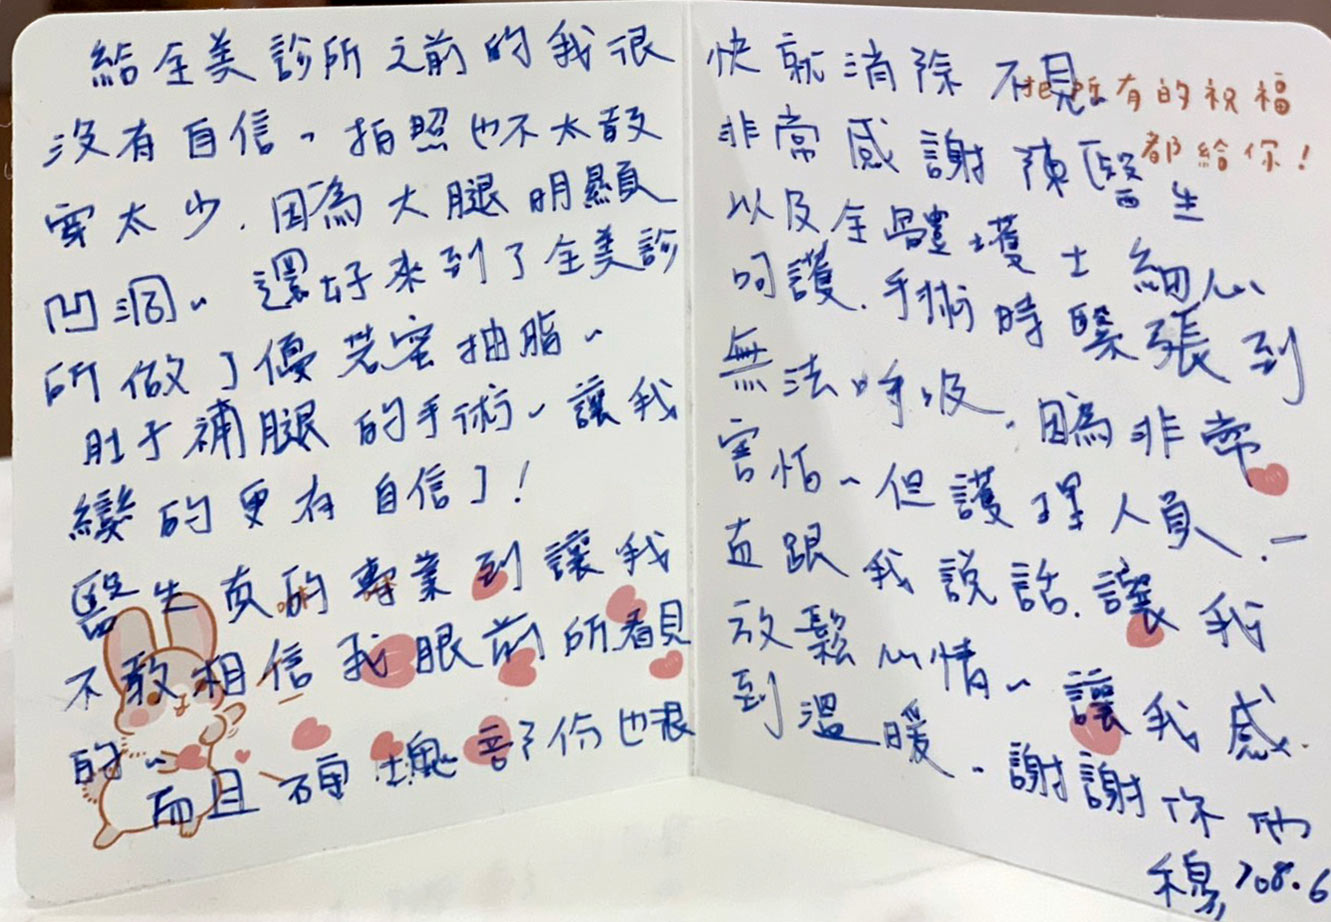 給全美診所之前的我很
沒有自信、拍照也不太敢
穿太少.因為大腿明顯
凹洞、還好來到了全美診
所做了優若蜜抽脂、
肚子補腿的手術、讓我
變的更有自信了!
醫生真的專業到讓我
不敢相信我眼前所看見
的、
而且硬塊部份也很
快就消除不見、
把所有的祝福
都給你!
非常感謝陳醫生
以及全體護士細心
呵護.手術時緊張到
無法呼吸.因為非常
害怕、但護理人員.一
直跟我說話.讓我
放鬆心情、讓我感
到溫暖、謝謝你們
108.6